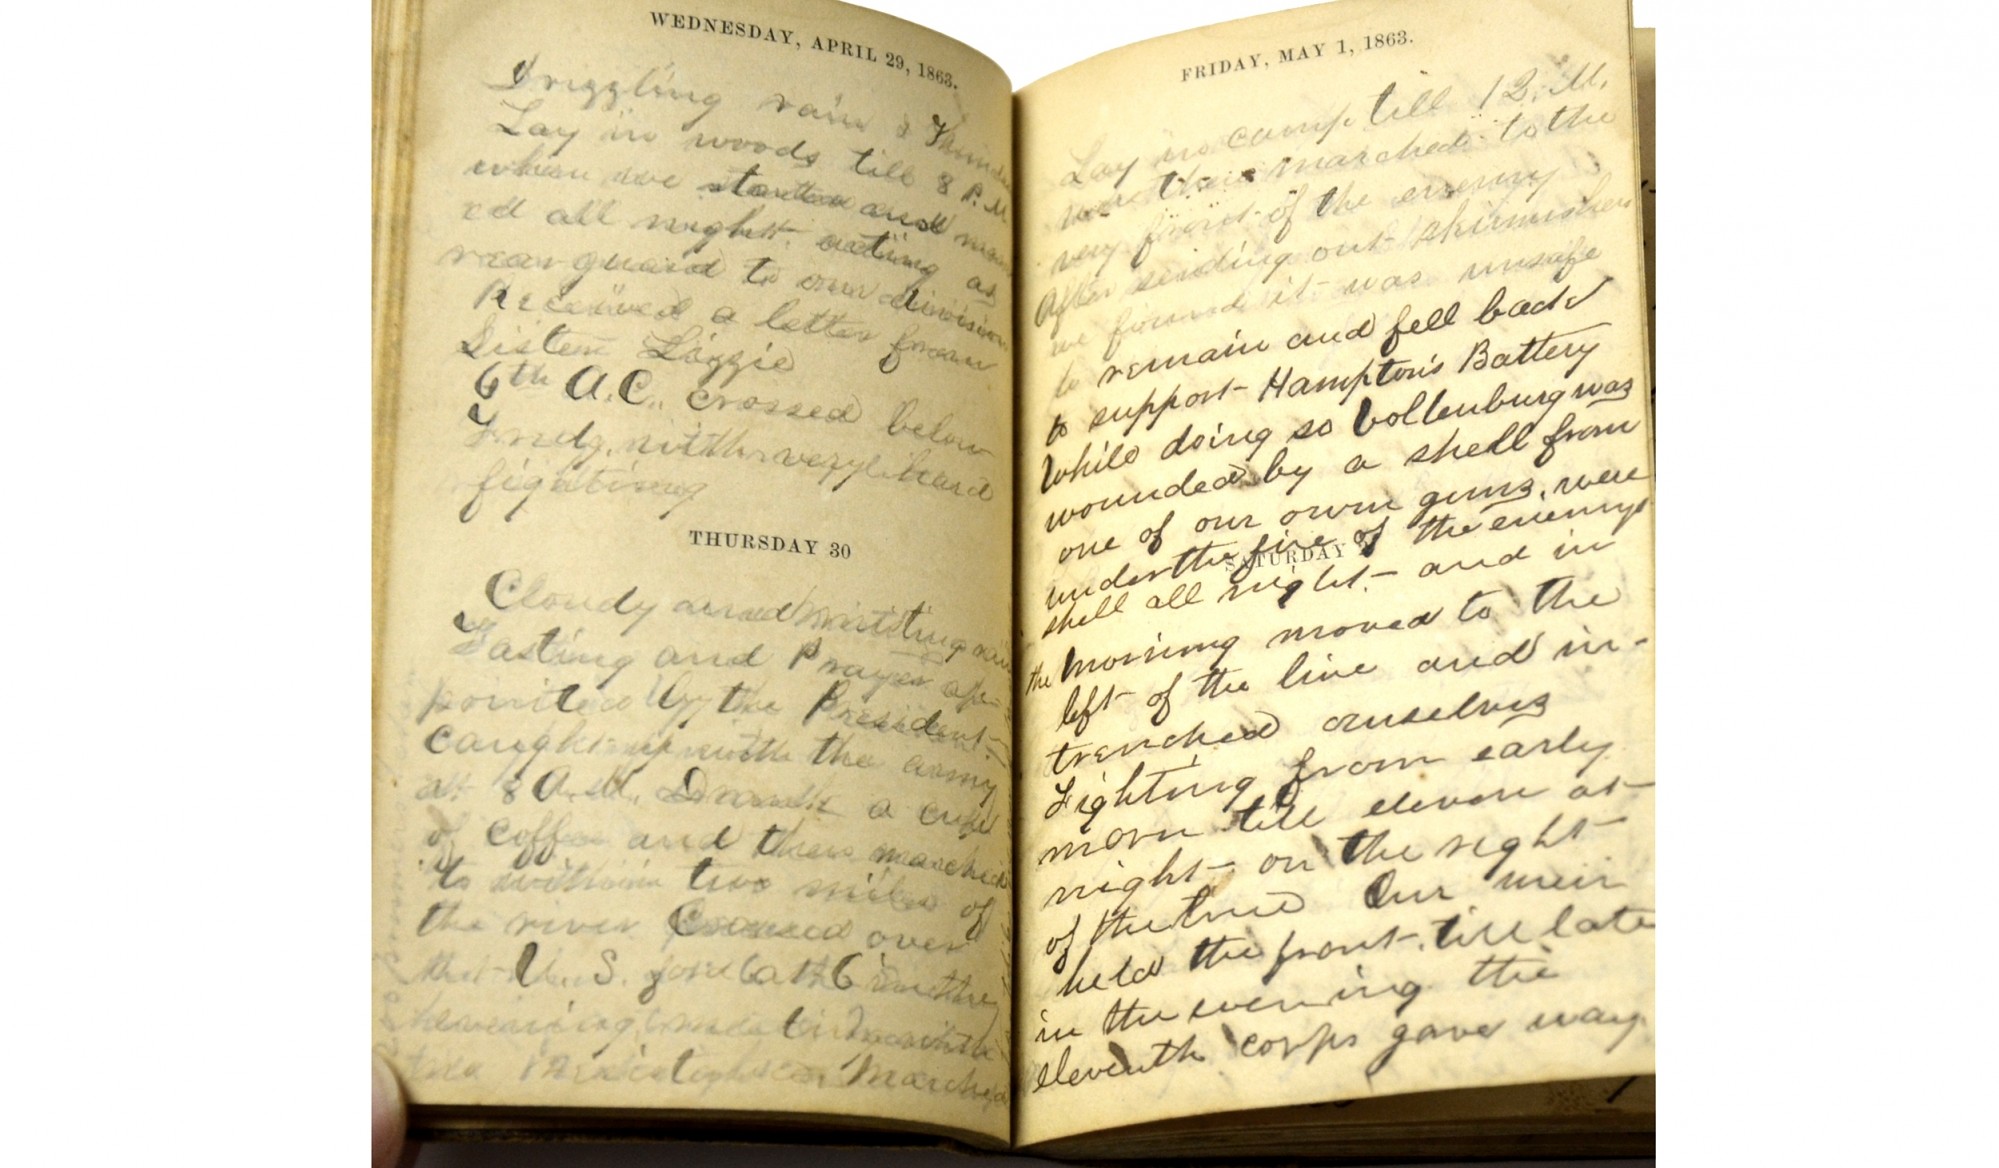 WEDNESDAY, APRIL 29, 1863.
Drizzling rain &
Lay in woods till 8 P.M
when we started and
ed all night. acting as
rear guard to our division
Received a letter from
Sister Lizzie
6th A.C. crossed below
Fredg. with very hard
fighting
THURSDAY 30
Cloudy and misting
Fasting and Prayer ap-
pointed by the President
caught up with the army
at 8 A.M. Drank a cup
of coffee and then marched
to within two miles of
the river Crossed over
the U.S. ford at 6 in the
evening
March
FRIDAY, MAY 1, 1863.
Lay in camp till 12. M.
was then marched to the
very front of the enemy
After sending out skirmishers
we found it was unsafe
to remain and fell back
to support Hampton's Battery
While doing so was
wounded by a shell from
one of our own guns, were
under the fire of the enemys
SATURDAY
shell all night. and in
the morning moved to the
left of the line and in-
trenched ourselves
Fighting from early
morn till eleven at
night on the right
of the line Our men
held the front till late
in the evening the
eleventh corps gave way